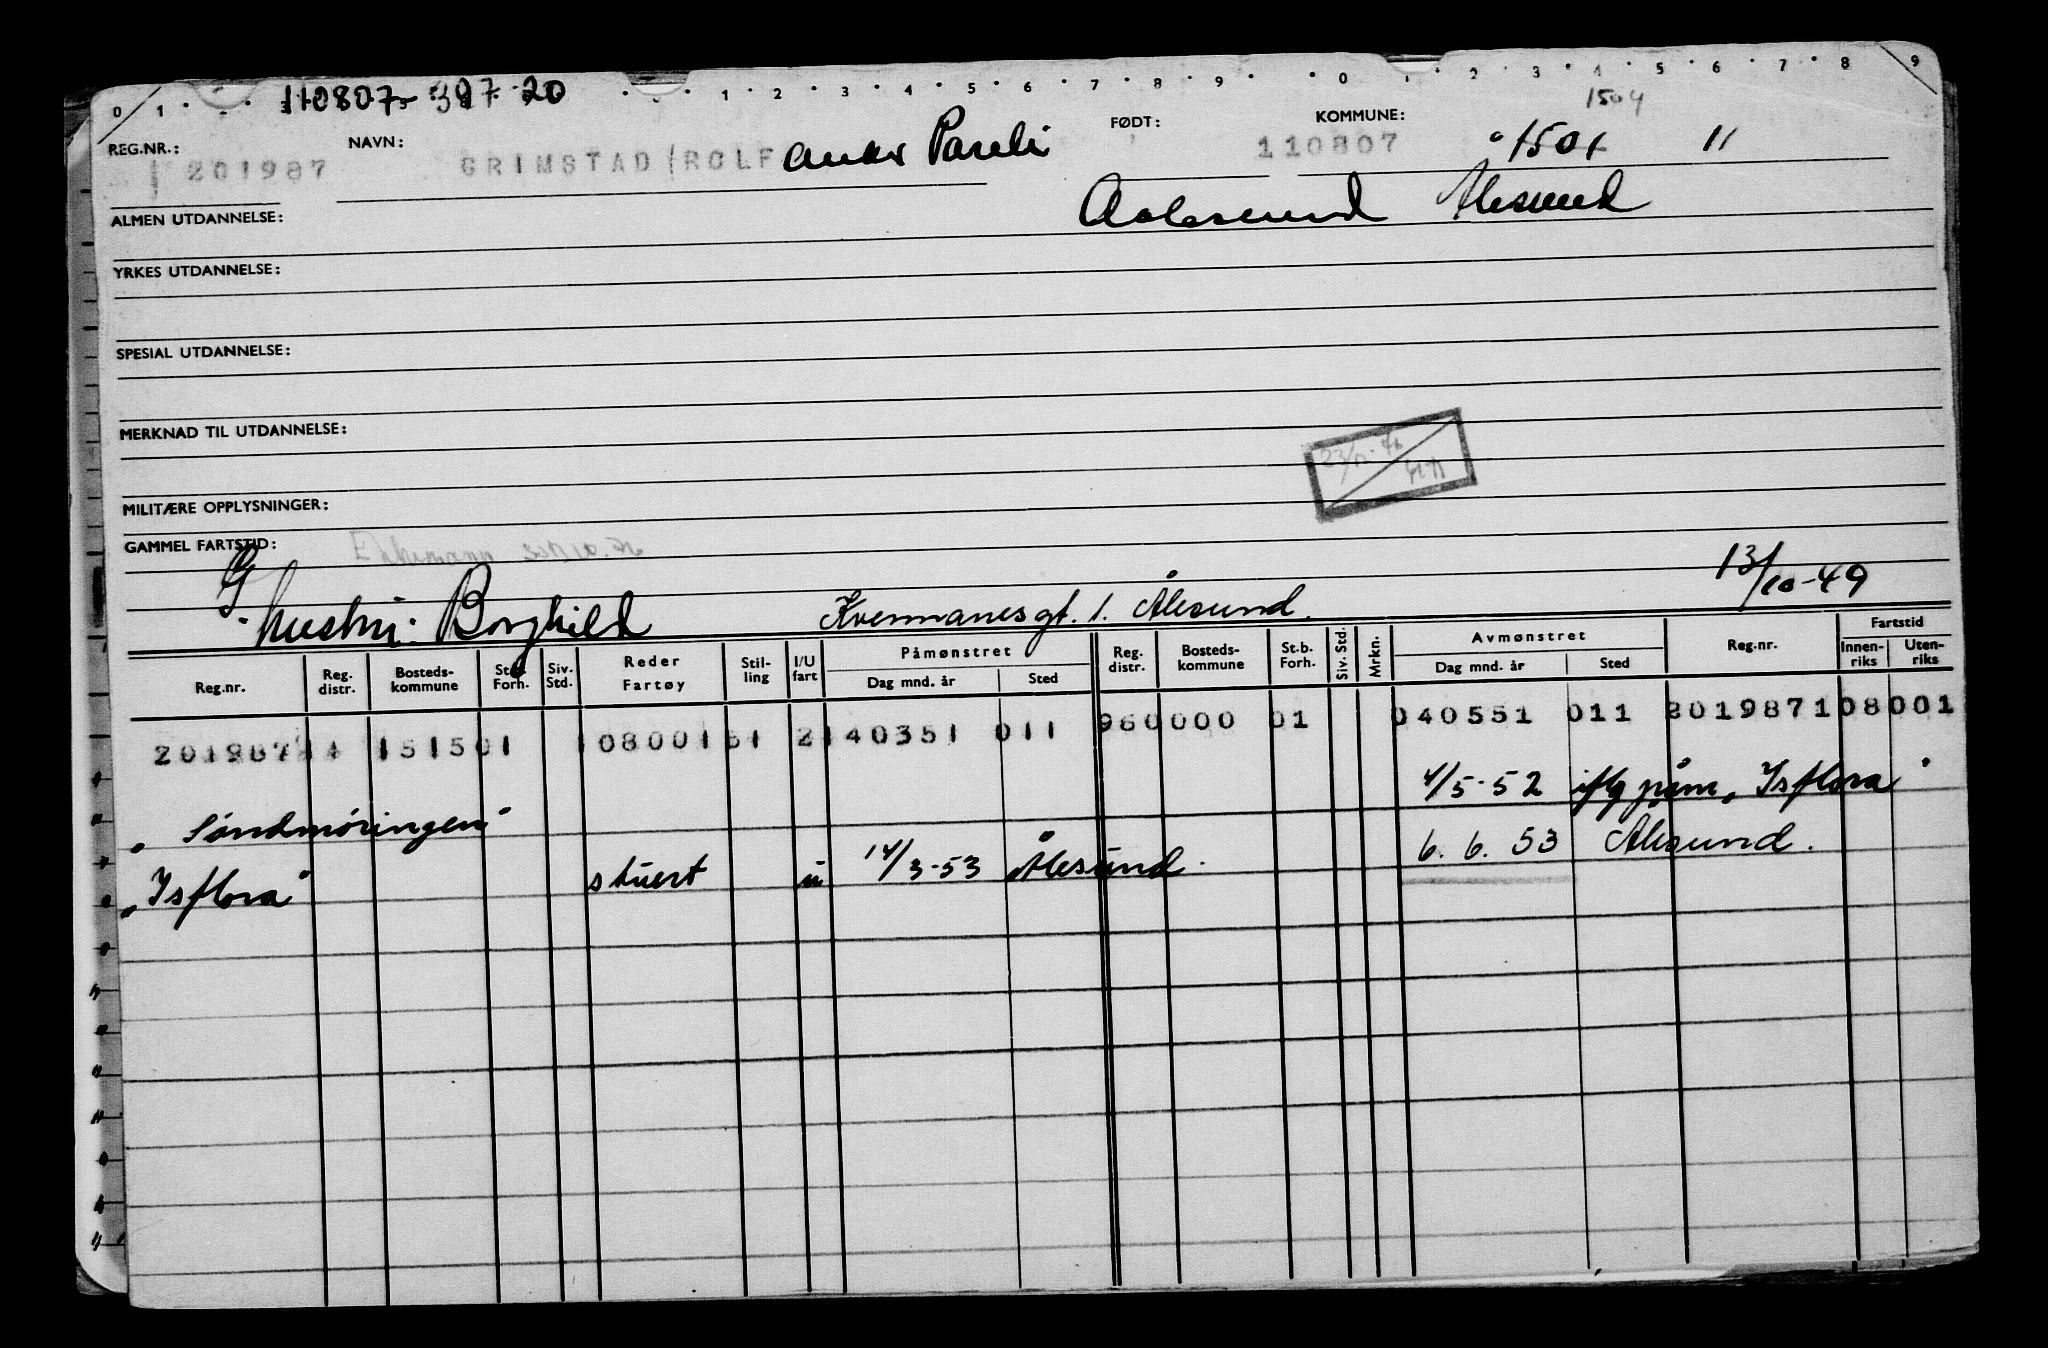 0 1 1 2 3 4 5 6 7 8 9 0 1 2 3 4 5 6 7 8 9
110807-397 20
1504
REG.NR.: NAVN: FØDT: KOMMUNE:
201987 GRIMSTAD ROLF 110807 1501 11
ALMEN UTDANNELSE: Aalesund Ålesund
YRKES UTDANNELSE:
SPESIAL UTDANNELSE:
MERKNAD TIL UTDANNELSE:
MILITÆRE OPPLYSNINGER:
GAMMEL FARTSTID:
G
hustru: Borghild Kvennanesgt. 1. Ålesund. 13/10-49
Reg.nr. Reg. distr. Bosteds- kommune St.b. Forh. Siv. Std. Reder Fartøy Stil- ling I/U fart Påmønstret Dag mnd. år Sted Reg. distr. Bosteds- kommune St.b. Forh. Siv. Std. Mrkn. Avmønstret Dag mnd. år Sted Reg.nr. Fartstid Innen- riks Uten- riks
201987 14 1515 01 08001 51 2 140351 011 960000 01 040551 011 201987108001
4/5-52 iflg påm „Isflora"
„Søndmøringen"
„Isflora" stuert u 14/3-53 Ålesund. 6.6.53 Ålesund.